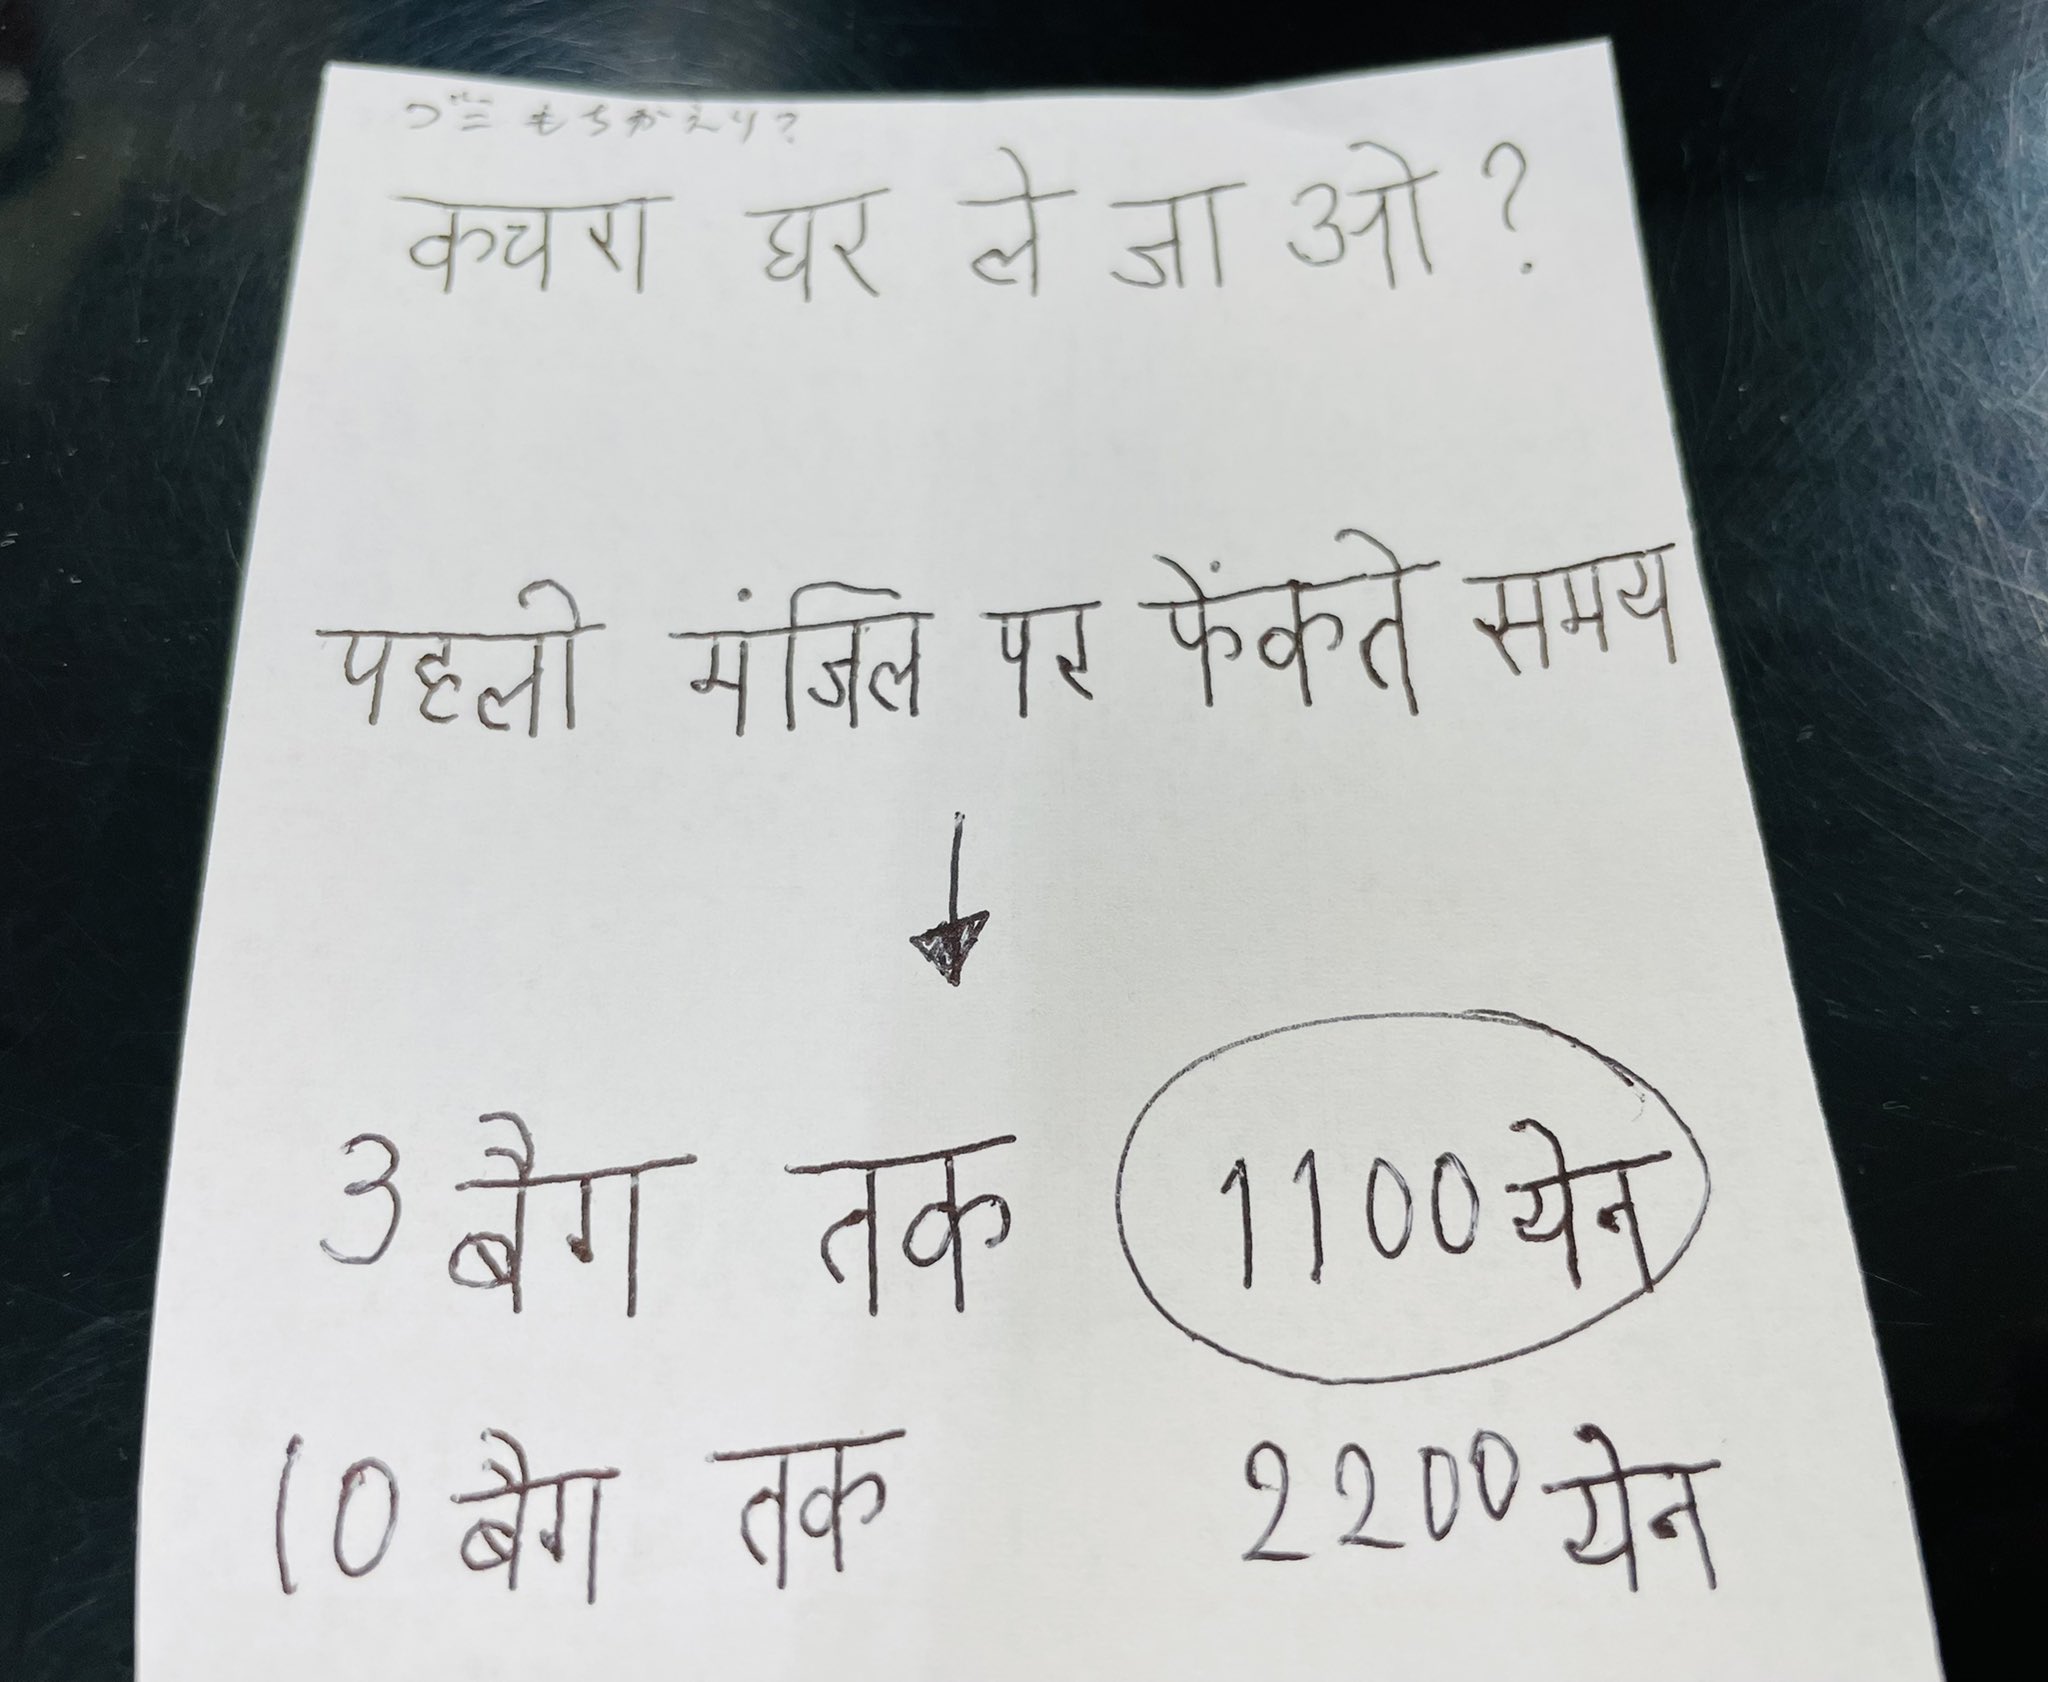 ゴミもちかえり?
कचरा घर ले जा ओ ?
पहली मंजिल पर फेंकते समय
3 बैग तक 1100 येन
10 बैग तक 2200 येन